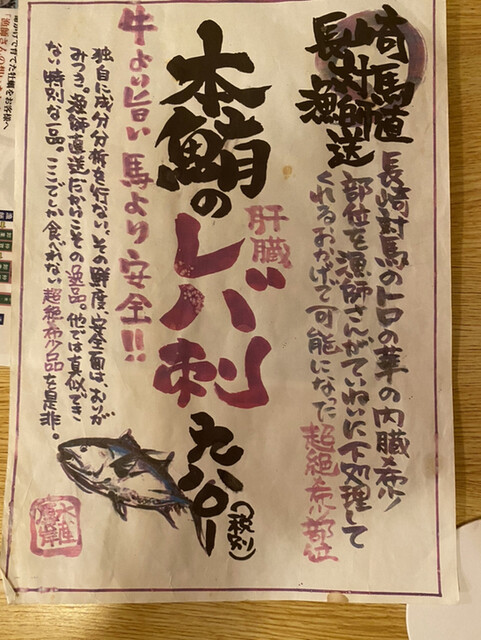 長崎対馬直
漁師直送
長崎対馬のトロの華の内臓、希少
部位を漁師さんがていねいに下処理して
くれるおかげで可能になった超絶希少部位
本鮪のレバ刺
肝臓
九八〇
(税別)
牛より旨い馬より安全!!
独自に成分分析を行ない、その鮮度、安全面は、おりが
みつき。漁師直送だからこその逸品。他では真似でき
ない特別な一品。ここでしか食べれない超絶希少品を是非。
掛けで育てた牡蠣をお客様へ